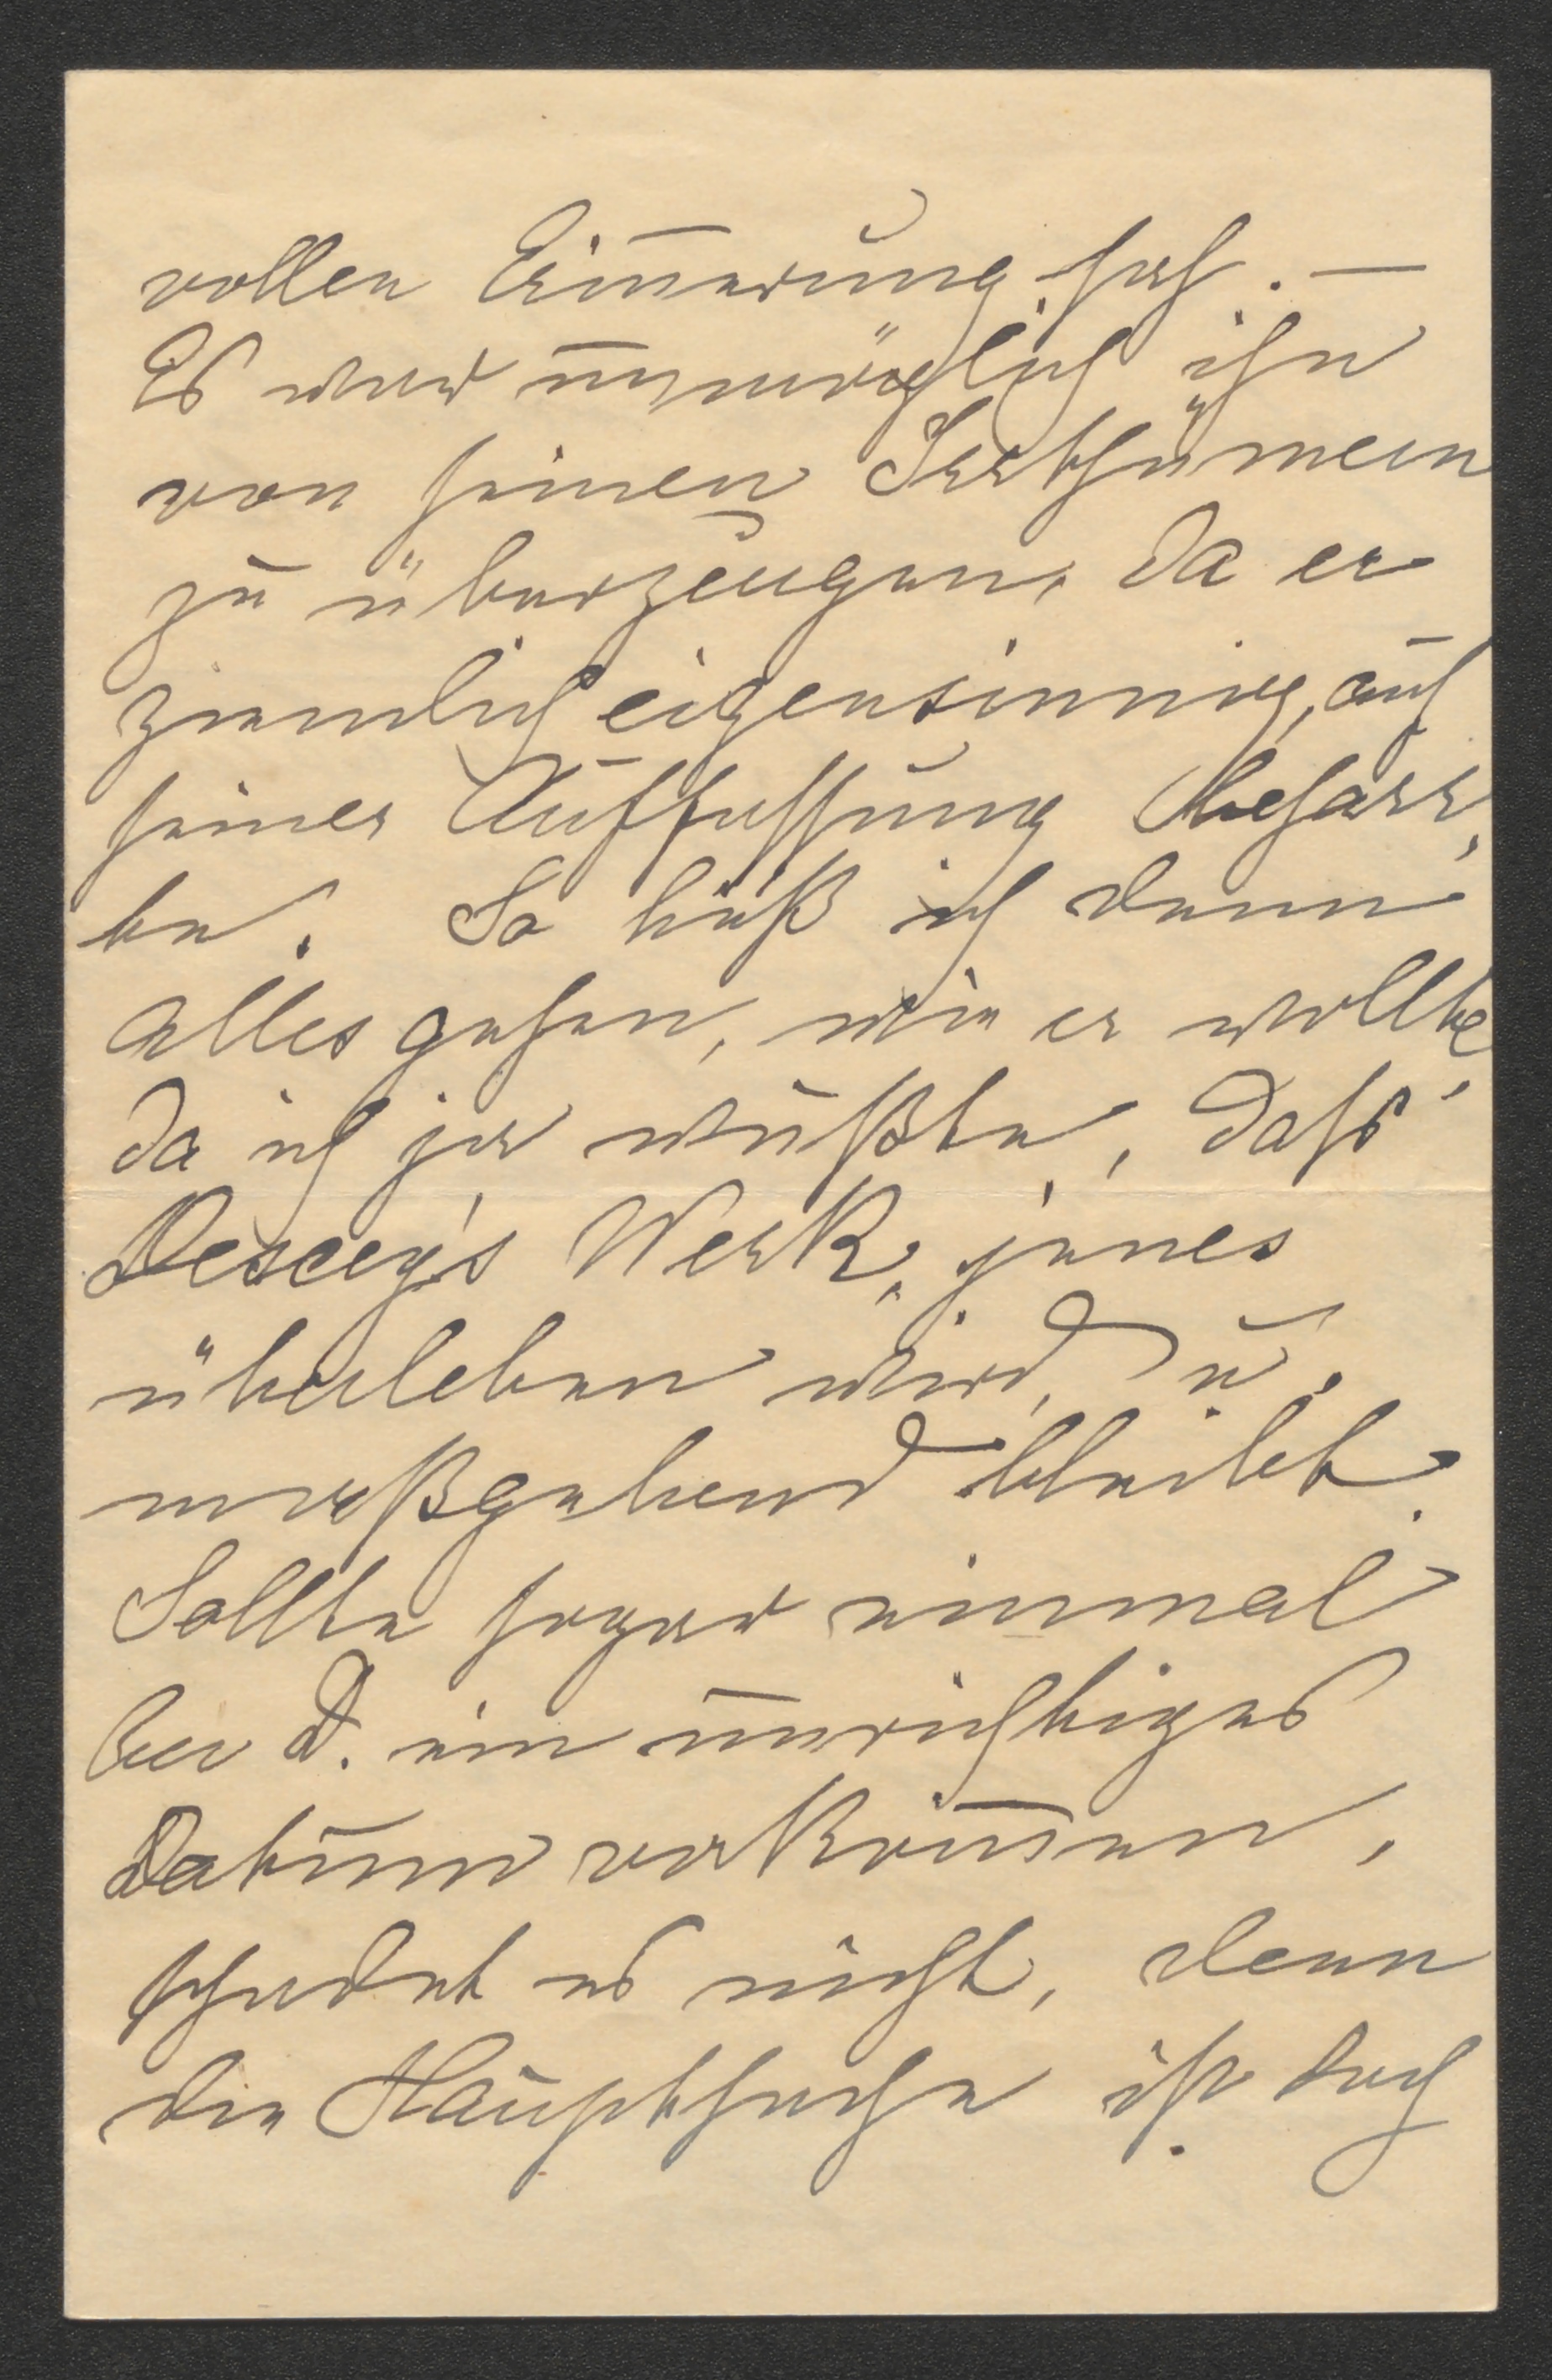 vollen Erin̄erung hat. —
Es war unmöglich ihn
von seinen Irrthümern
zu überzeugen, da er
ziemlich eigensinnig, auf
seiner Auffassung beharr-
te. So ließ ich denn
alles gehen, wie er wollte,
da ich ja wußte, daß
Decsey's Werk, jenes
überleben wird, u.
maßgebend bleibt.
Sollte sogar einmal
bei D. ein unrichtiges
Datum vorkom̄en,
schadet es nicht, denn
die Hauptsache ist doch